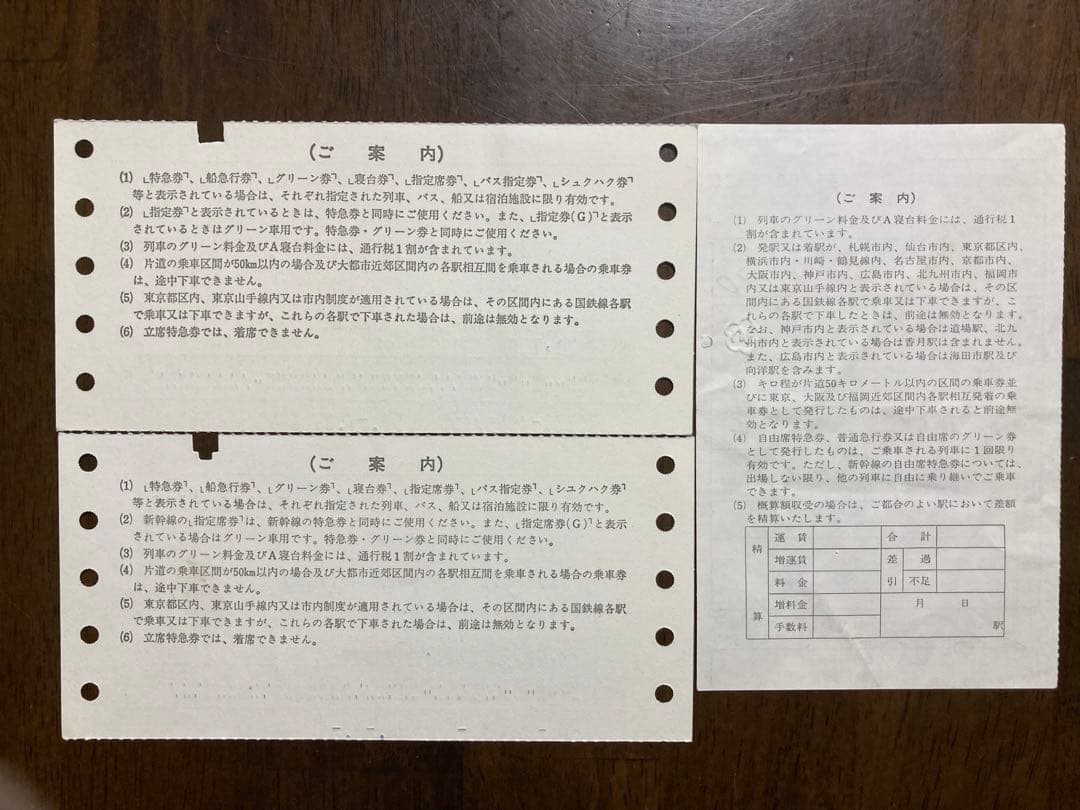 (ご案内)
(1) ｢特急券｣、｢船急行券｣、｢グリーン券｣、｢寝台券｣、｢指定席券｣、｢バス指定券｣、｢シュクハク券｣
等と表示されている場合は、それぞれ指定された列車、バス、船又は宿泊施設に限り有効です。
(2) ｢指定券｣と表示されているときは、特急券と同時にご使用ください。また、｢指定券(G)｣と表示
されているときはグリーン車用です。特急券・グリーン券と同時にご使用ください。
(3) 列車のグリーン料金及びA寝台料金には、通行税1割が含まれています。
(4) 片道の乗車区間が50km以内の場合及び大都市近郊区間内の各駅相互間を乗車される場合の乗車券
は、途中下車できません。
(5) 東京都区内、東京山手線内又は市内制度が適用されている場合は、その区間内にある国鉄線各駅
で乗車又は下車できますが、これらの各駅で下車された場合は、前途は無効となります。
(6) 立席特急券では、着席できません。
(ご案内)
(1) ｢特急券｣、｢船急行券｣、｢グリーン券｣、｢寝台券｣、｢指定席券｣、｢バス指定券｣、｢シユクハク券｣
等と表示されている場合は、それぞれ指定された列車、バス、船又は宿泊施設に限り有効です。
(2) 新幹線の｢指定席券｣は、新幹線の特急券と同時にご使用ください。また、｢指定席券(G)｣と表示
されている場合はグリーン車用です。特急券・グリーン券と同時にご使用ください。
(3) 列車のグリーン料金及びA寝台料金には、通行税1割が含まれています。
(4) 片道の乗車区間が50km以内の場合及び大都市近郊区間内の各駅相互間を乗車される場合の乗車券
は、途中下車できません。
(5) 東京都区内、東京山手線内又は市内制度が適用されている場合は、その区間内にある国鉄線各駅
で乗車又は下車できますが、これらの各駅で下車された場合は、前途は無効となります。
(6) 立席特急券では、着席できません。
(ご案内)
(1) 列車のグリーン料金及びA寝台料金には、通行税1
割が含まれています。
(2) 発駅又は着駅が、札幌市内、仙台市内、東京都区内、
横浜市内・川崎・鶴見線内、名古屋市内、京都市内、
大阪市内、神戸市内、広島市内、北九州市内、福岡市
内又は東京山手線内と表示されている場合は、その区
間内にある国鉄線各駅で乗車又は下車できますが、こ
れらの各駅で下車したときは、前途は無効となります。
なお、神戸市内と表示されている場合は道場駅、北九
州市内と表示されている場合は香月駅は含まれません。
また、広島市内と表示されている場合は海田市駅及び
向洋駅を含みます。
(3) キロ程が片道50キロメートル以内の区間の乗車券並
びに東京、大阪及び福岡近郊区間内各駅相互発着の乗
車券として発行したものは、途中下車されると前途無
効となります。
(4) 自由席特急券、普通急行券又は自由席のグリーン券
として発行したものは、ご乗車される列車に1回限り
有効です。ただし、新幹線の自由席特急券については、
出場しない限り、他の列車に自由に乗り継いでご乗車
できます。
(5) 概算額収受の場合は、ご都合のよい駅において差額
を精算いたします。
精算
運賃 合計
増運賃 差引 過
料金 不足
増料金 月 日
手数料 駅